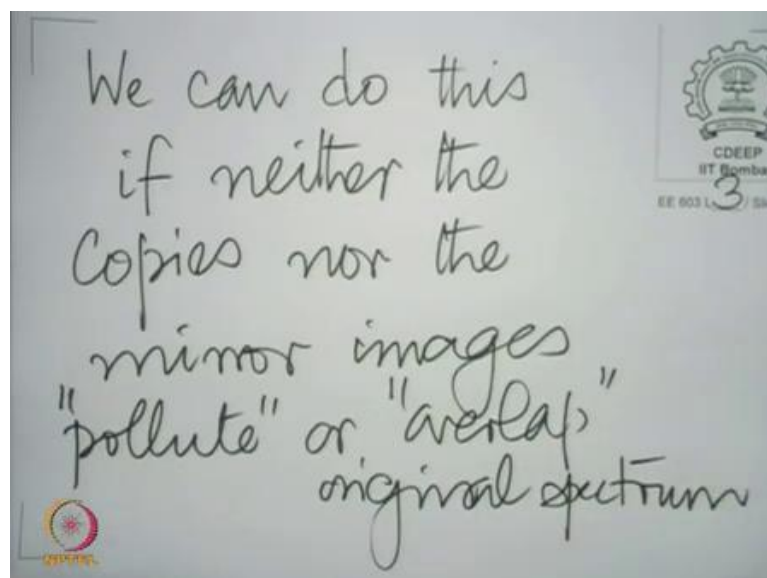 We can do this
if neither the
Copies nor the
mirror images
"pollute" or "overlap"
original spectrum
CDEEP
IIT Bomba
EE 603 L 3 / Sl
NPTEL